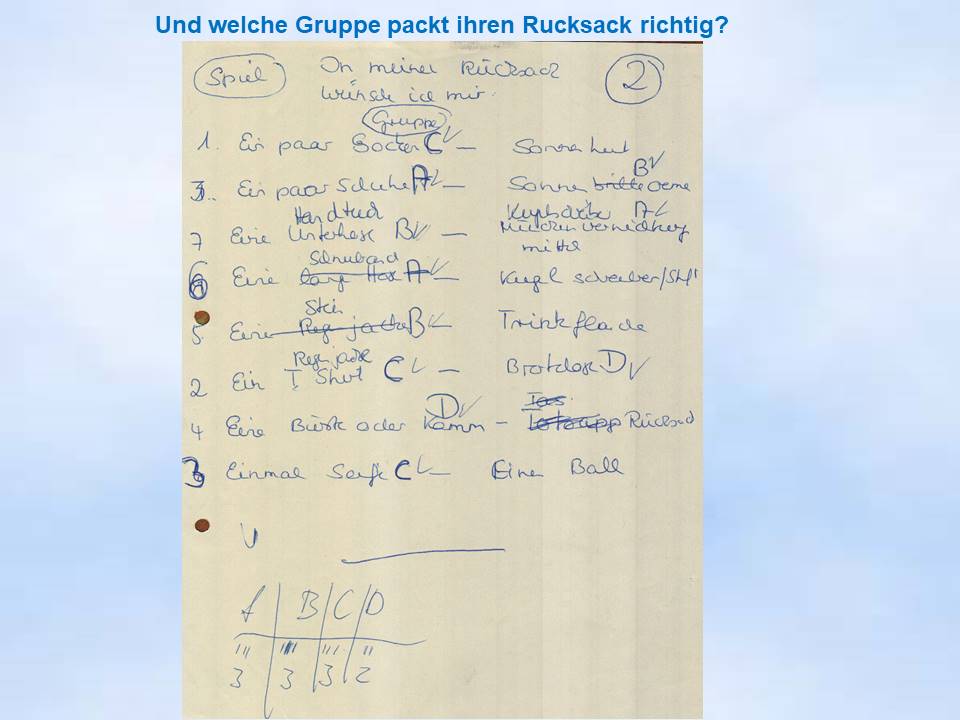 Und welche Gruppe packt ihren Rucksack richtig?
Spiel In meinen Rücksack 2
wünsche ich mir.
Gruppe
1. Ein paar Socken C – Sonnenhut
B
3. Ein paar Schuhe A – Sonnen brille creme
Handtuch A
7 Eine Unterhose B – Mückenvernichtung
mittel
Schnurband
6 Eine lange Hose A – Kugelschreiber/Stift
Stein
5. Eine Regenjacke B – Trinkflasche
Regenjacke
2 Ein T. Shirt C – Brotdose D
D Tas
4 Eine Bürste oder Kamm – Rücksack
3 Einmal Seife C – Einen Ball
A B C D
3 3 3 2